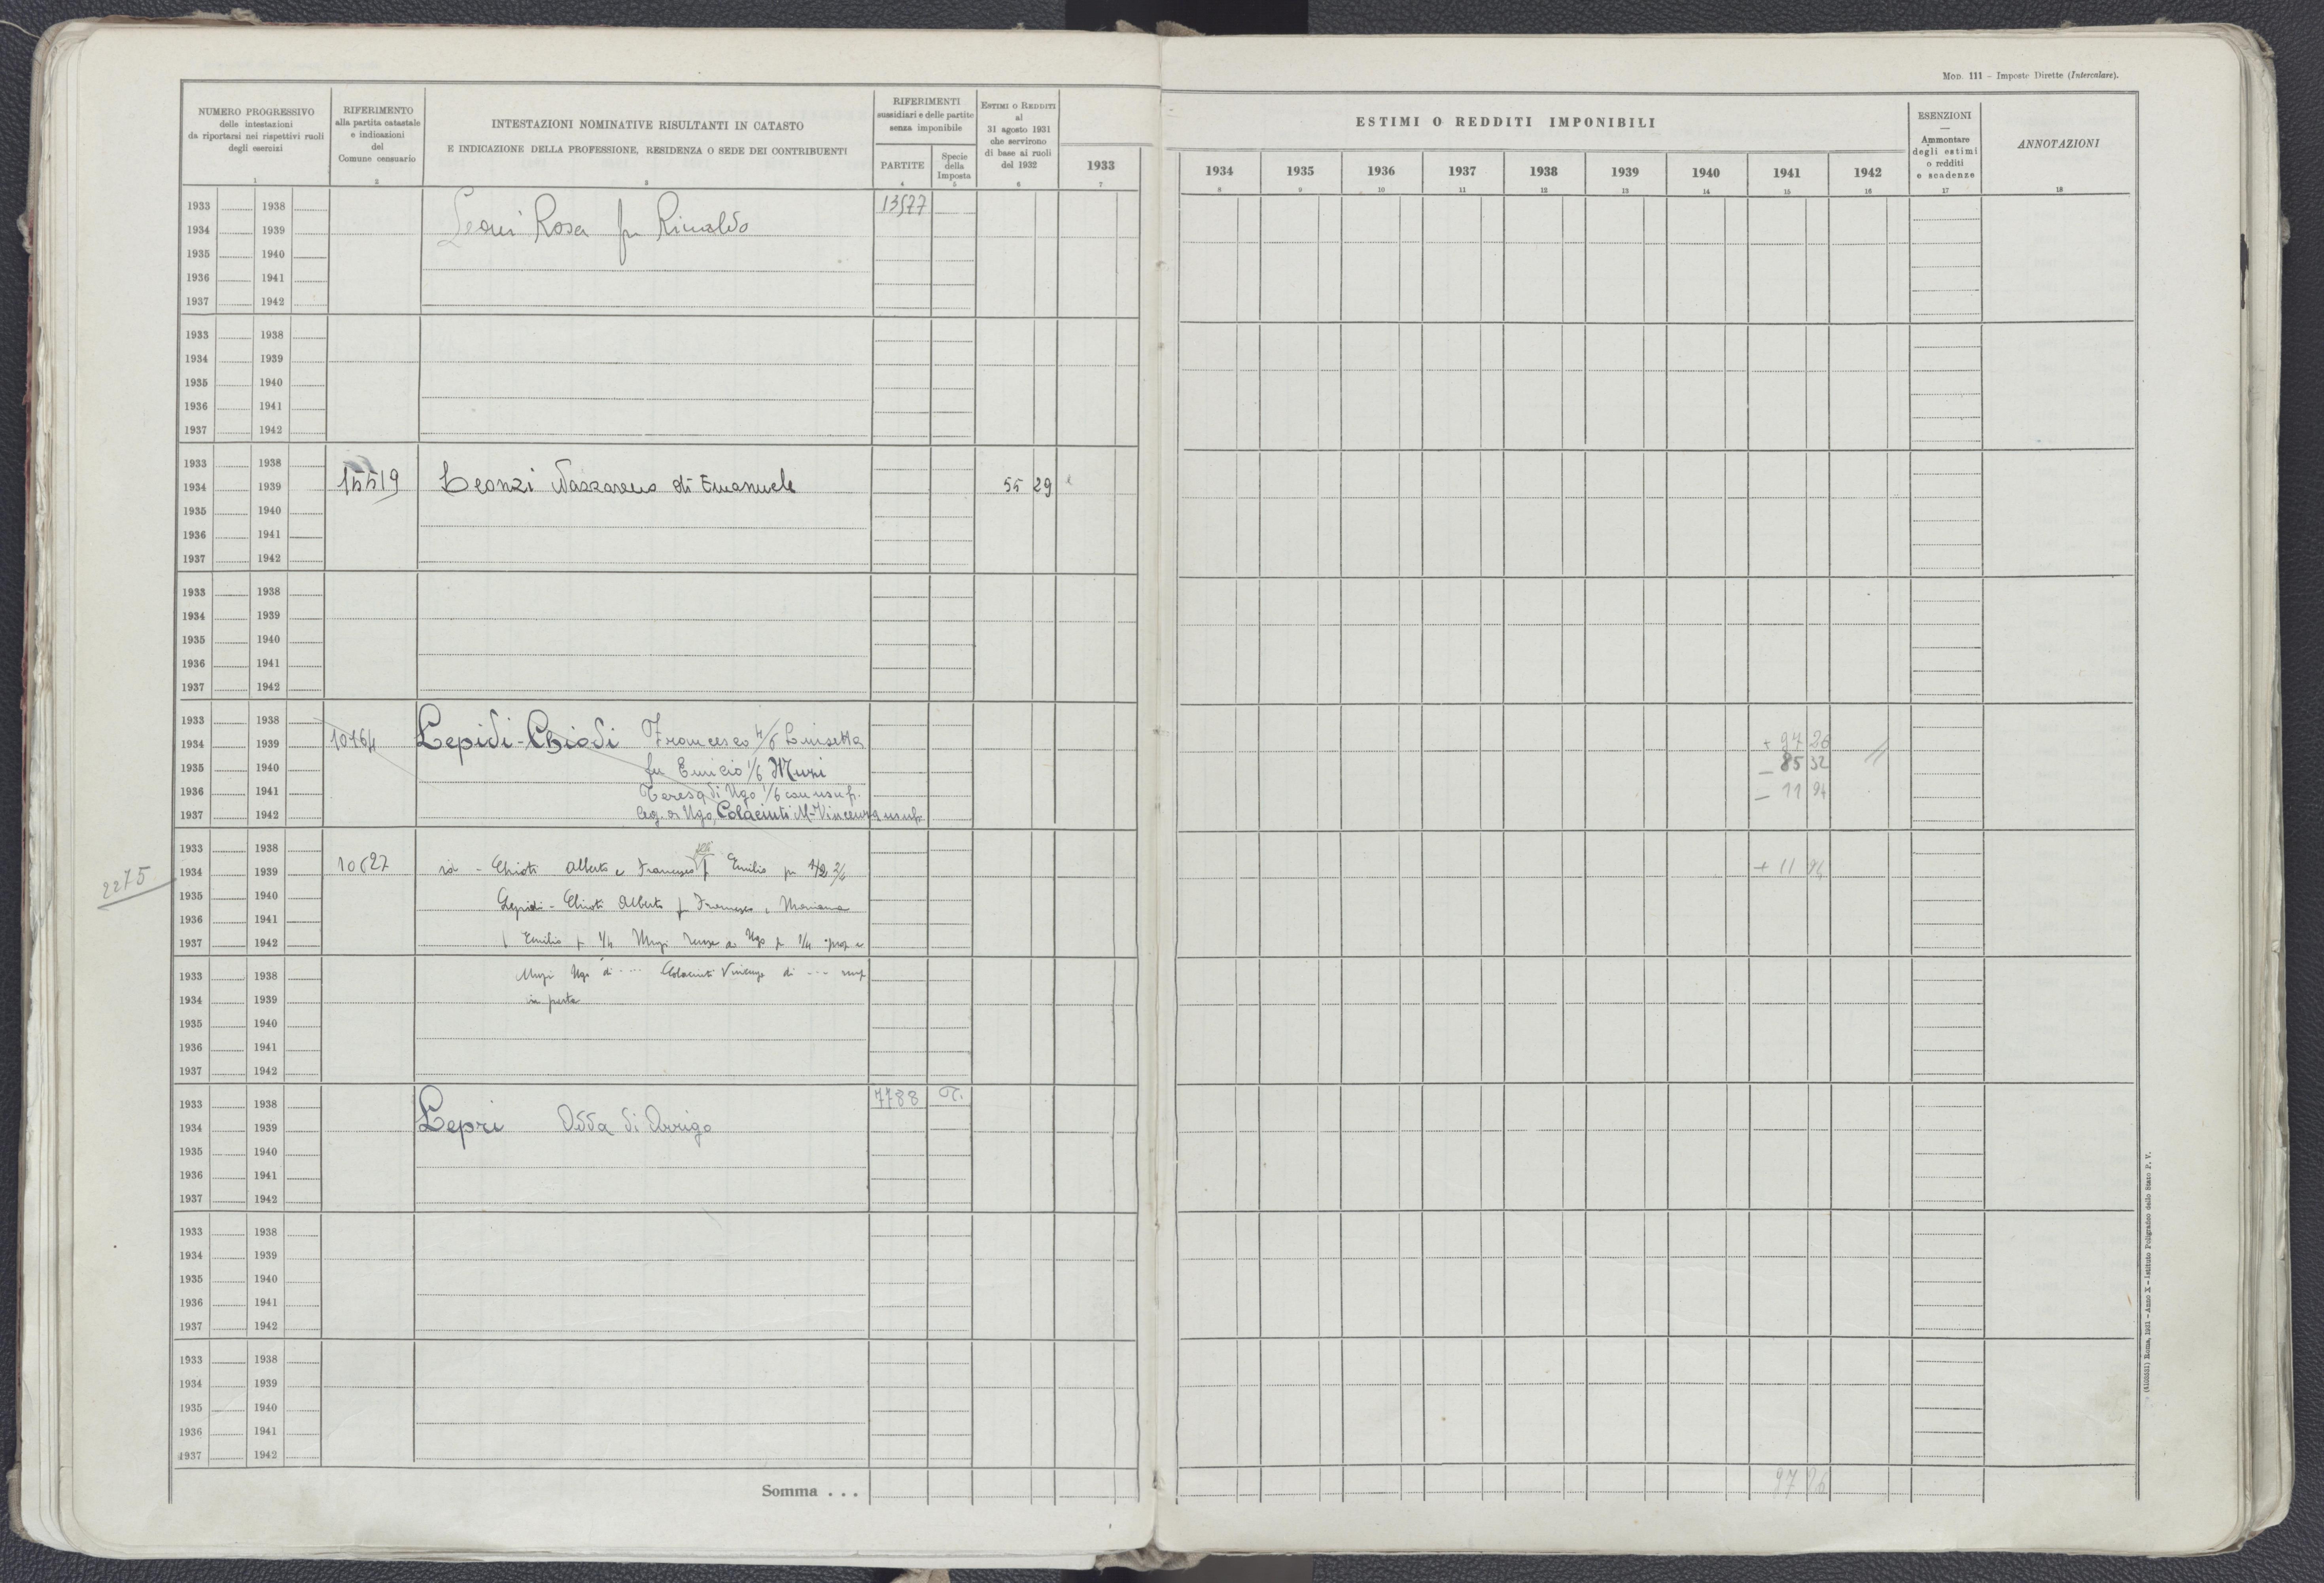 MOD. 111 - Imposte Dirette (Intercalare).
NUMERO PROGRESSIVO
delle intestazioni
da riportarsi nei rispettivi ruoli
degli esercizi
1
RIFERIMENTO
alla partita catastale
e indicazioni
del
Comune censuario
2
INTESTAZIONI NOMINATIVE RISULTANTI IN CATASTO
E INDICAZIONE DELLA PROFESSIONE, RESIDENZA O SEDE DEI CONTRIBUENTI
3
RIFERIMENTI
sussidiari e delle partite
senza imponibile
PARTITE
4
Specie
della
Imposta
5
ESTIMI O REDDITI
al
31 agosto 1931
che servirono
di base ai ruoli
del 1932
6
1933
7
ESTIMI O REDDITI IMPONIBILI
1934 1935 1936 1937 1938 1939 1940 1941 1942
8 9 10 11 12 13 14 15 16
ESENZIONI
—
Ammontare
degli estimi
o redditi
e scadenze
17
ANNOTAZIONI
18
1933 1938 13577
1934 1939 Leoni Rosa fu Rinaldo
1935 1940
1936 1941
1937 1942
1933 1938
1934 1939
1935 1940
1936 1941
1937 1942
1933 1938
1934 1939 15519 Leonzi Nazzareno di Emanuele 55 29
1935 1940
1936 1941
1937 1942
1933 1938
1934 1939
1935 1940
1936 1941
1937 1942
1933 1938
1934 1939 10164 Lepidi-Chiodi Francesco 4/6 Luisetta + 97 26
1935 1940 fu Emicio 1/6 Muzi - 85 32
1936 1941 Teresa di Ugo 1/6 con usuf. - 11 94
1937 1942 leg. a Ugo, Colacinti M. Vincenza usuf.
1933 1938
2275 1934 1939 10627 Alberto e Francesco Emilio 1/2 2/4 + 11 94
1935 1940 Lepidi - Alberto Francesco Mariana
1936 1941
1937 1942 Emilio 1/4 Muzi Ugo 1/4
1933 1938 Muzi Ugo di ... Colacinti Vincenza di ... usuf
1934 1939 in parte
1935 1940
1936 1941
1937 1942
1933 1938 7788 T.
1934 1939 Lepri Odda di Arrigo
1935 1940
1936 1941
1937 1942
1933 1938
1934 1939
1935 1940
1936 1941
1937 1942
1933 1938
1934 1939
1935 1940
1936 1941
1937 1942
Somma . . . 97 26
Roma, 1931 - Anno X - Istituto Poligrafico dello Stato P. V.